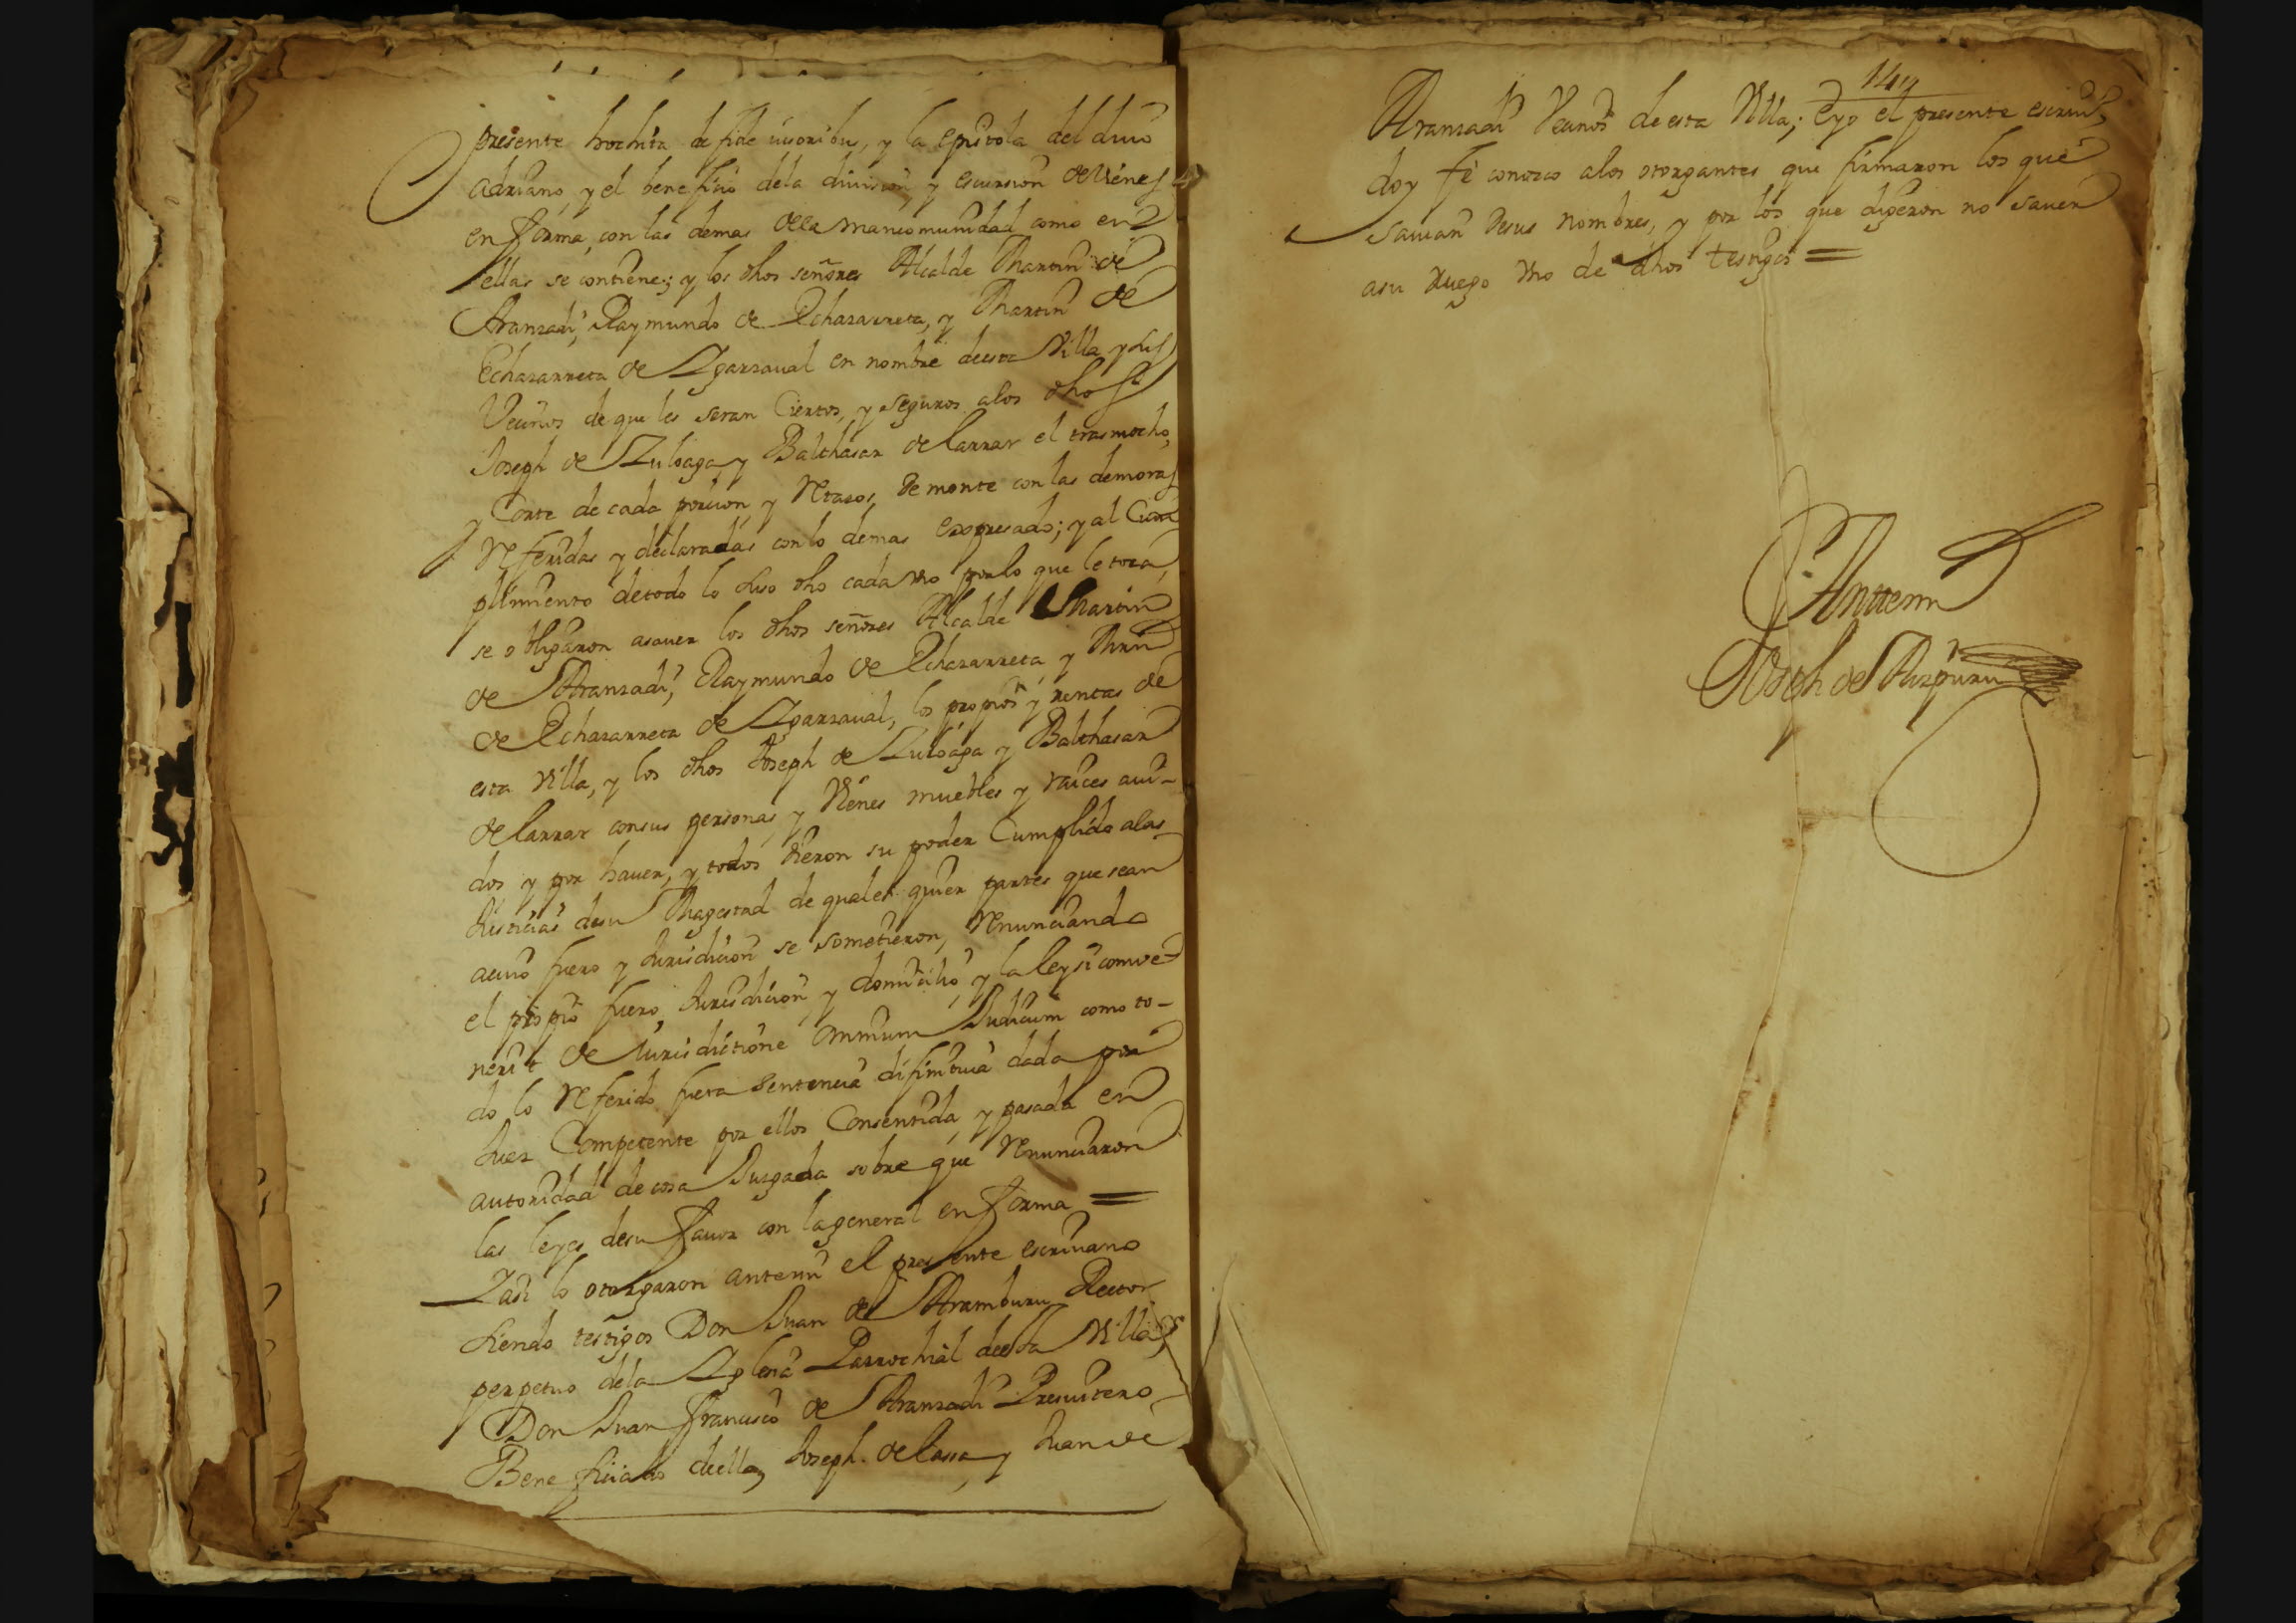 presente hochita de fide iusoribus, y la epistola del diuo
Adriano, y el beneficio dela diuision, y escursion de vienes
en forma, con las demas dela mancomunidad como en
ellas se contiene; y los dhos señores Alcalde Martin de
Aranzadi, Raymundo de Echazarreta, y Martin de
Echazarreta de Ygarzaual en nombre deesta Villa y sus
Vecinos de que les seran Ciertos, y seguros alos dhos
Joseph de Zuloaga, y Balthasar de larrar el trasmocho,
y Corte de cada porcion, y Retazos, de monte con las demoras
Referidas y declaradas con lo demas expresado; y al Cum
plimiento detodo lo suso dho cada vno porlo que le toca,
se obligaron asauer los dhos señores Alcalde Martin
de Aranzadi, Raymundo de Echazarreta, y Mrn
de Echazarreta de Ygarzaual, los propios y rentas de
esta Villa, y los dhos Joseph de Zuloaga y Balthasar
de larrar consus personas, y Vienes muebles y raices aui-
dos y por hauer, y todos dieron su poder Cumplido alas
Justicias desu Magestad de quales quier partes que sean
acuio fuero y Jurisdicion se sometieron, Renunciando
el propio fuero, Jurisdicion, y domicilio, y la ley si comve
nerit de Jurisdictione omnium Judicum como to-
do lo Referido fuera sentencia difinitiua dada por
Juez Competente por ellos Consentida, y pasada en
autoridad de cosa Juzgada sobre que Renunciaron
las leyes desu fauor con lageneral en forma =
Yasi lo otorgaron antemi el presente escriuano
siendo testigos Don Juan de Aramburu Rector
perpetuo dela Yglesia Parrochial deesta Villa,
Don Juan Francisco de Aranzadi Presuitero
Beneficiado deella, Joseph de lasa, y Juan de
144
Aranzadi Vecinos deesta Villa; Eyo el presente escriuo
doy fè conozco alos otorgantes que firmaron los que
sauian desus nombres, y por los que digeron no sauer
asu Ruego vno de dhos testigos =
Anttemi
Joseph de Aizpuru